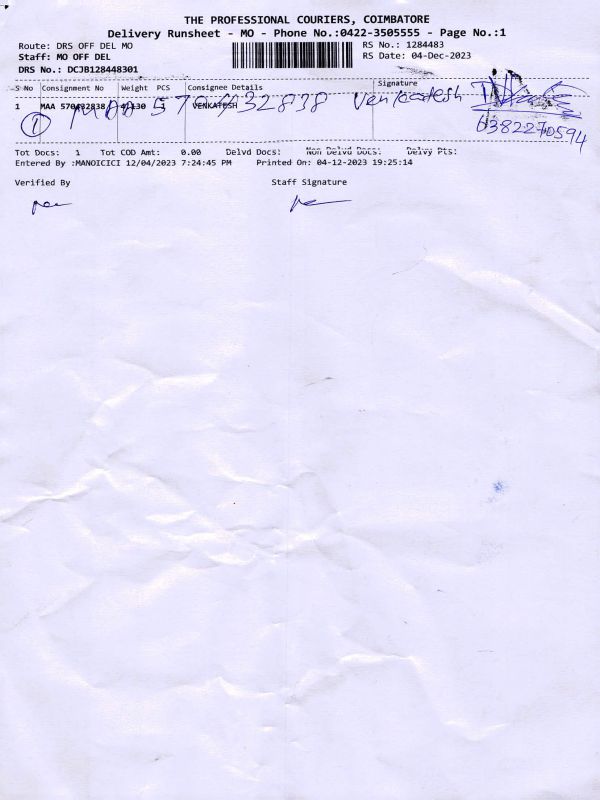 THE PROFESSIONAL COURIERS, COIMBATORE
Delivery Runsheet - MO - Phone No.:0422-3505555 - Page No.:1
Route: DRS OFF DEL MO
RS No.: 1284483
Staff: MO OFF DEL
RS Date: 04-Dec-2023
DRS No.: DCJB128448301
S No Consignment No Weight PCS Consignee Details Signature
1 MAA 570432838 VENKATESH
① MAA 570432838 Venkatesh
6382270594
Tot Docs: 1 Tot COD Amt: 0.00 Delvd Docs: Non Delvd Docs: Delvy Pts:
Entered By :MANOICICI 12/04/2023 7:24:45 PM Printed On: 04-12-2023 19:25:14
Verified By Staff Signature